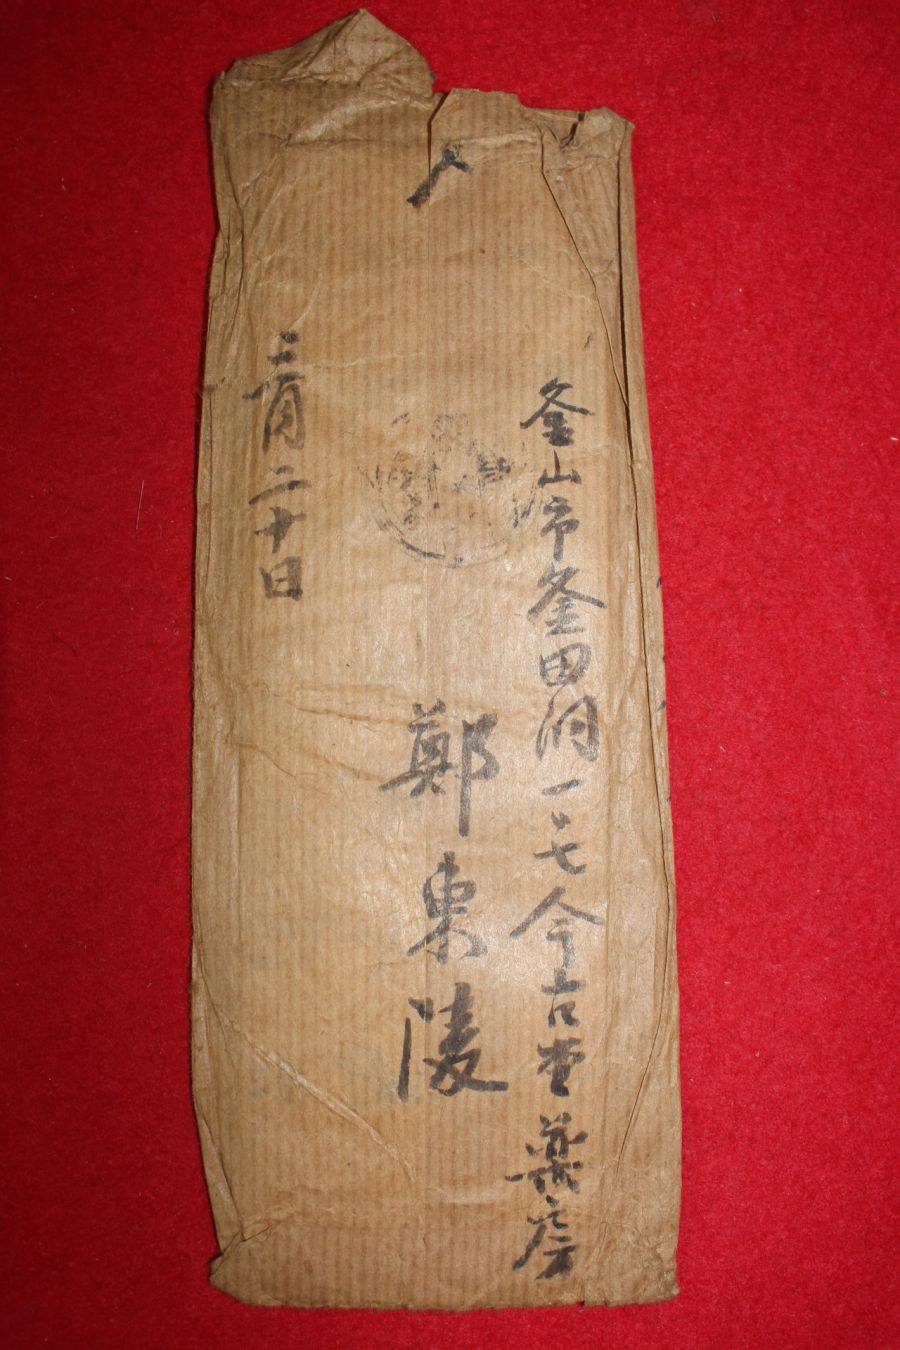 釜山市釜田洞一〇七今古堂薬房
鄭東陵
二月二十日